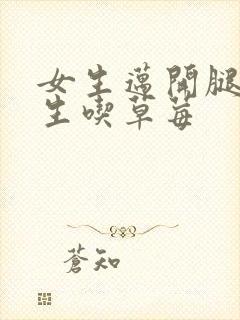 女生邁開腿
生喫草莓
蒼知